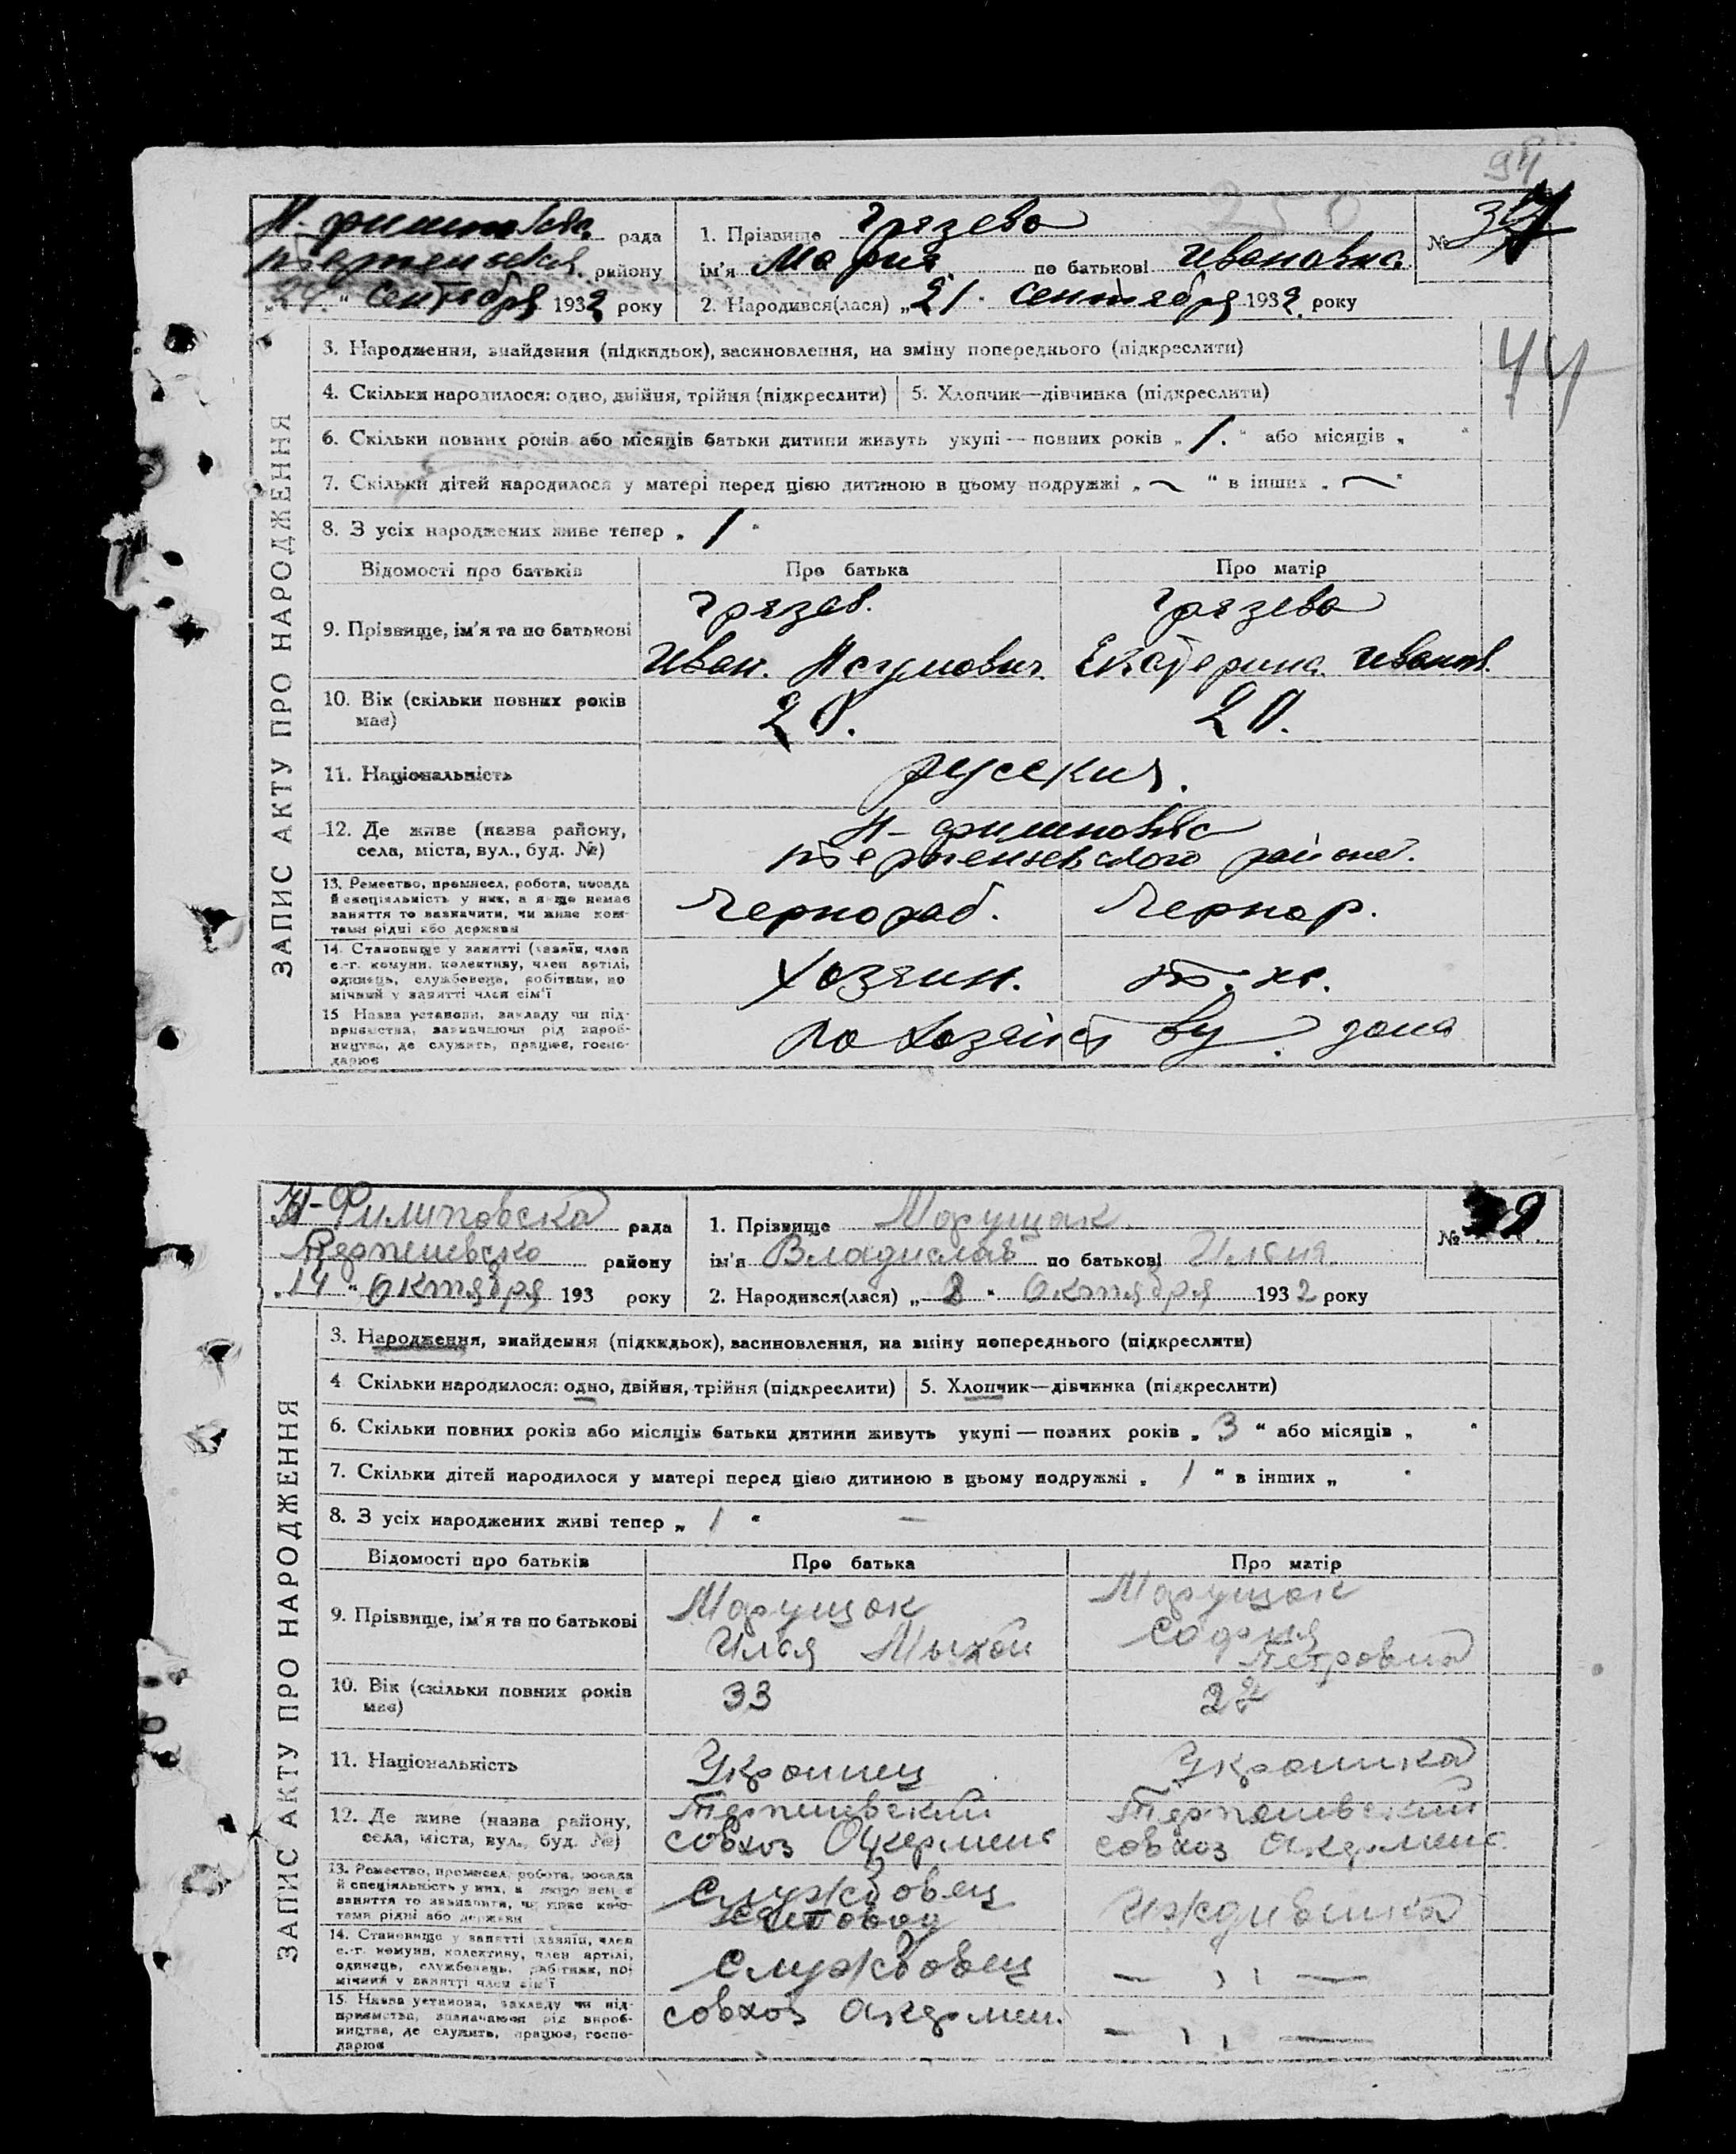 94
250
Н-Филиповка рада
Терпеньевск. району
"24" Сентября 1932 року
1. Прізвище Грязева
ім'я Мария по батькові Ивановна
2. Народився(лася) „21" Сентября 1932 року
№ 37
44
ЗАПИС АКТУ ПРО НАРОДЖЕННЯ
3. Народження, знайдення (підкидьок), засиновлення, на зміну попереднього (підкреслити)
4. Скільки народилося: одно, двійня, трійня (підкреслити) 5. Хлопчик—дівчинка (підкреслити)
6. Скільки повних років або місяців батьки дитини живуть укупі — повних років „1." або місяців „ "
7. Скільки дітей народилося у матері перед цією дитиною в цьому подружжі „~" в інших „~"
8. З усіх народжених живе тепер „1"
Відомості про батьків Про батька Про матір
9. Прізвище, ім'я та по батькові
Грязев. Грязева
Иван. Наумович. Екатерина Иванов.
10. Вік (скільки повних років має)
20. 20.
11. Національність
русския.
12. Де живе (назва району, села, міста, вул., буд. №)
Н-Филиповка
Терпеньевского района.
13. Ремество, промисел, робота, посада й спеціяльність у них, а якщо немає заняття то зазначити, чи живе коштами рідні або держави
Чернораб. Чернор.
14. Становище у занятті (хазяїн, член с.-г. комуни, колективу, член артілі, одинець, службовець, робітник, помічний у занятті член сім'ї
Хозяин. т. х.
15 Назва установи, закладу чи підприємства, зазначаючи рід виробництва, де служить, працює, господарює
По хозяйству дома
Н-Филиповска рада
Терпеньевско району
„14" Октября 193 року
1. Прізвище Марущак
ім'я Владислав по батькові Ильич
2. Народився(лася) „8" Октября 1932 року
№ 39
ЗАПИС АКТУ ПРО НАРОДЖЕННЯ
3. Народження, знайдення (підкидьок), засиновлення, на зміну попереднього (підкреслити)
4 Скільки народилося: одно, двійня, трійня (підкреслити) 5. Хлопчик—дівчинка (підкреслити)
6. Скільки повних років або місяців батьки дитини живуть укупі — повних років „3" або місяців „ "
7. Скільки дітей народилося у матері перед цією дитиною в цьому подружжі „1" в інших „ "
8. З усіх народжених живі тепер „1" —
Відомості про батьків Про батька Про матір
9. Прізвище, ім'я та по батькові
Марущак Марущак
Илья Мыхай София
Петровна
10. Вік (скільки повних років має)
33 22
11. Національність
Украинец Украинка
12. Де живе (назва району, села, міста, вул., буд. №)
Терпеневский Терпеневский
совхоз Аккермень совхоз Акермень
13. Ремество, промисел, робота, посада й спеціяльність у них, а якщо немає заняття то зазначити, чи живе коштами рідні або держави
Службовец Иждивинка
14. Становище у занятті (хазяїн, член с.-г. комуни, колективу, член артілі, одинець, службовець, робітник, помічний у занятті член сім'ї
Службовец — " —
15. Назва установи, закладу чи підприємства, зазначаючи рід виробництва, де служить, працює, господарює
совхоз Акермен. — " —